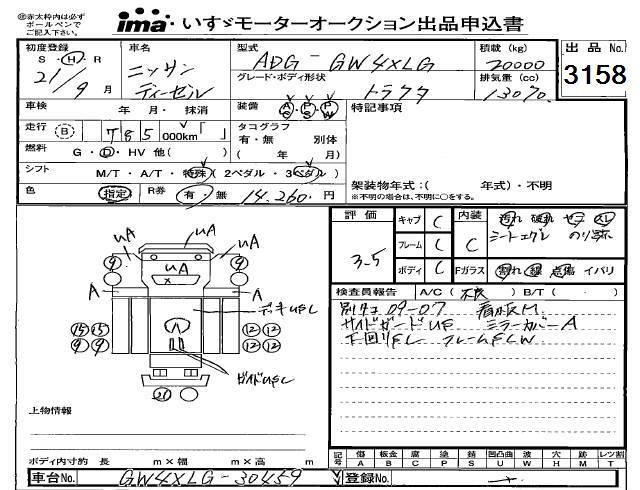 ㊟赤太枠内は必ず
ボールペンで
ご記入下さい。
ima いすゞモーターオークション出品申込書
初度登録 車名 型式 積載 (kg) 出品 No.
S・H・R ニッサン ADG-GW4XLG 20000 3158
21/9月 ディーゼル グレード・ボディ形状 排気量 (cc)
トラクタ 13070
車検 年 月・抹消 装備 AC・PS・PW 特記事項
走行 B 785 000km「 」 タコグラフ
有・無 別体
燃料 G・D・HV 他( ) ( 年 月)
シフト M/T・A/T・特殊 (2ペダル・3ペダル) 架装物年式:( 年式)・不明
※不明の場合は、不明に○をする。
色 指定 R券 有・無 14,260-円
評価 キャブ C 内装 汚れ 破れ ヤニ スレ
3-5 フレーム C C シートエグレ のり跡
ボディ C Fガラス 割れ 線 点傷 イバリ
検査員報告 A/C( 不良 ) B/T( ・ )
別タコ 09-07 看板M
サイドガードUF ミラーカバーA
下回りFL フレームFLW
UA UA UA
UA
9 9
A A
デッキUFL
15 15 12 12
9 9 12 12
ガイドUFL
21
上物情報
ボディ内寸約 長 m×幅 m×高 m
記号 傷 板金 腐 塗 錆 凹凸曲 波 穴 跡 レツ割
A B C P S U W H M T
車台No. GW4XLG-30459 登録No.